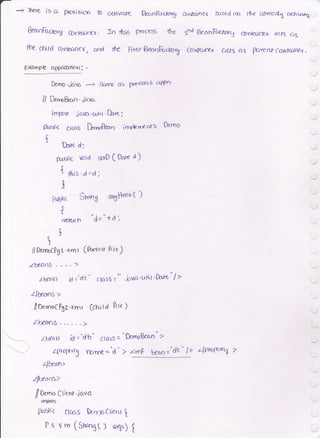 → There is a provision to activate BeanFactory container based on the already activated
BeanFactory container. In this process the 2nd BeanFactory container acts as
the child container, and the First BeanFactory container acts as parent container.
Example application:-
Demo.java → Same as previous appn
// DemoBean.java
import java.util.Date;
public class DemoBean implements Demo
{
Date d;
public void setD(Date d)
{ this.d=d;
}
public String sayHello()
{
return "d="+d;
}
}
//DemoCfg1.xml (Parent file)
<beans ....>
<bean id="dt" class="java.util.Date"/>
</beans>
//DemoCfg2.xml (child file)
<beans ......>
<bean id="db" class="DemoBean">
<property name="d"> <ref bean="dt"/> </property>
</bean>
</beans>
// Demo Client.java
imports
public class DemoClient {
P s v m (String[] args) {